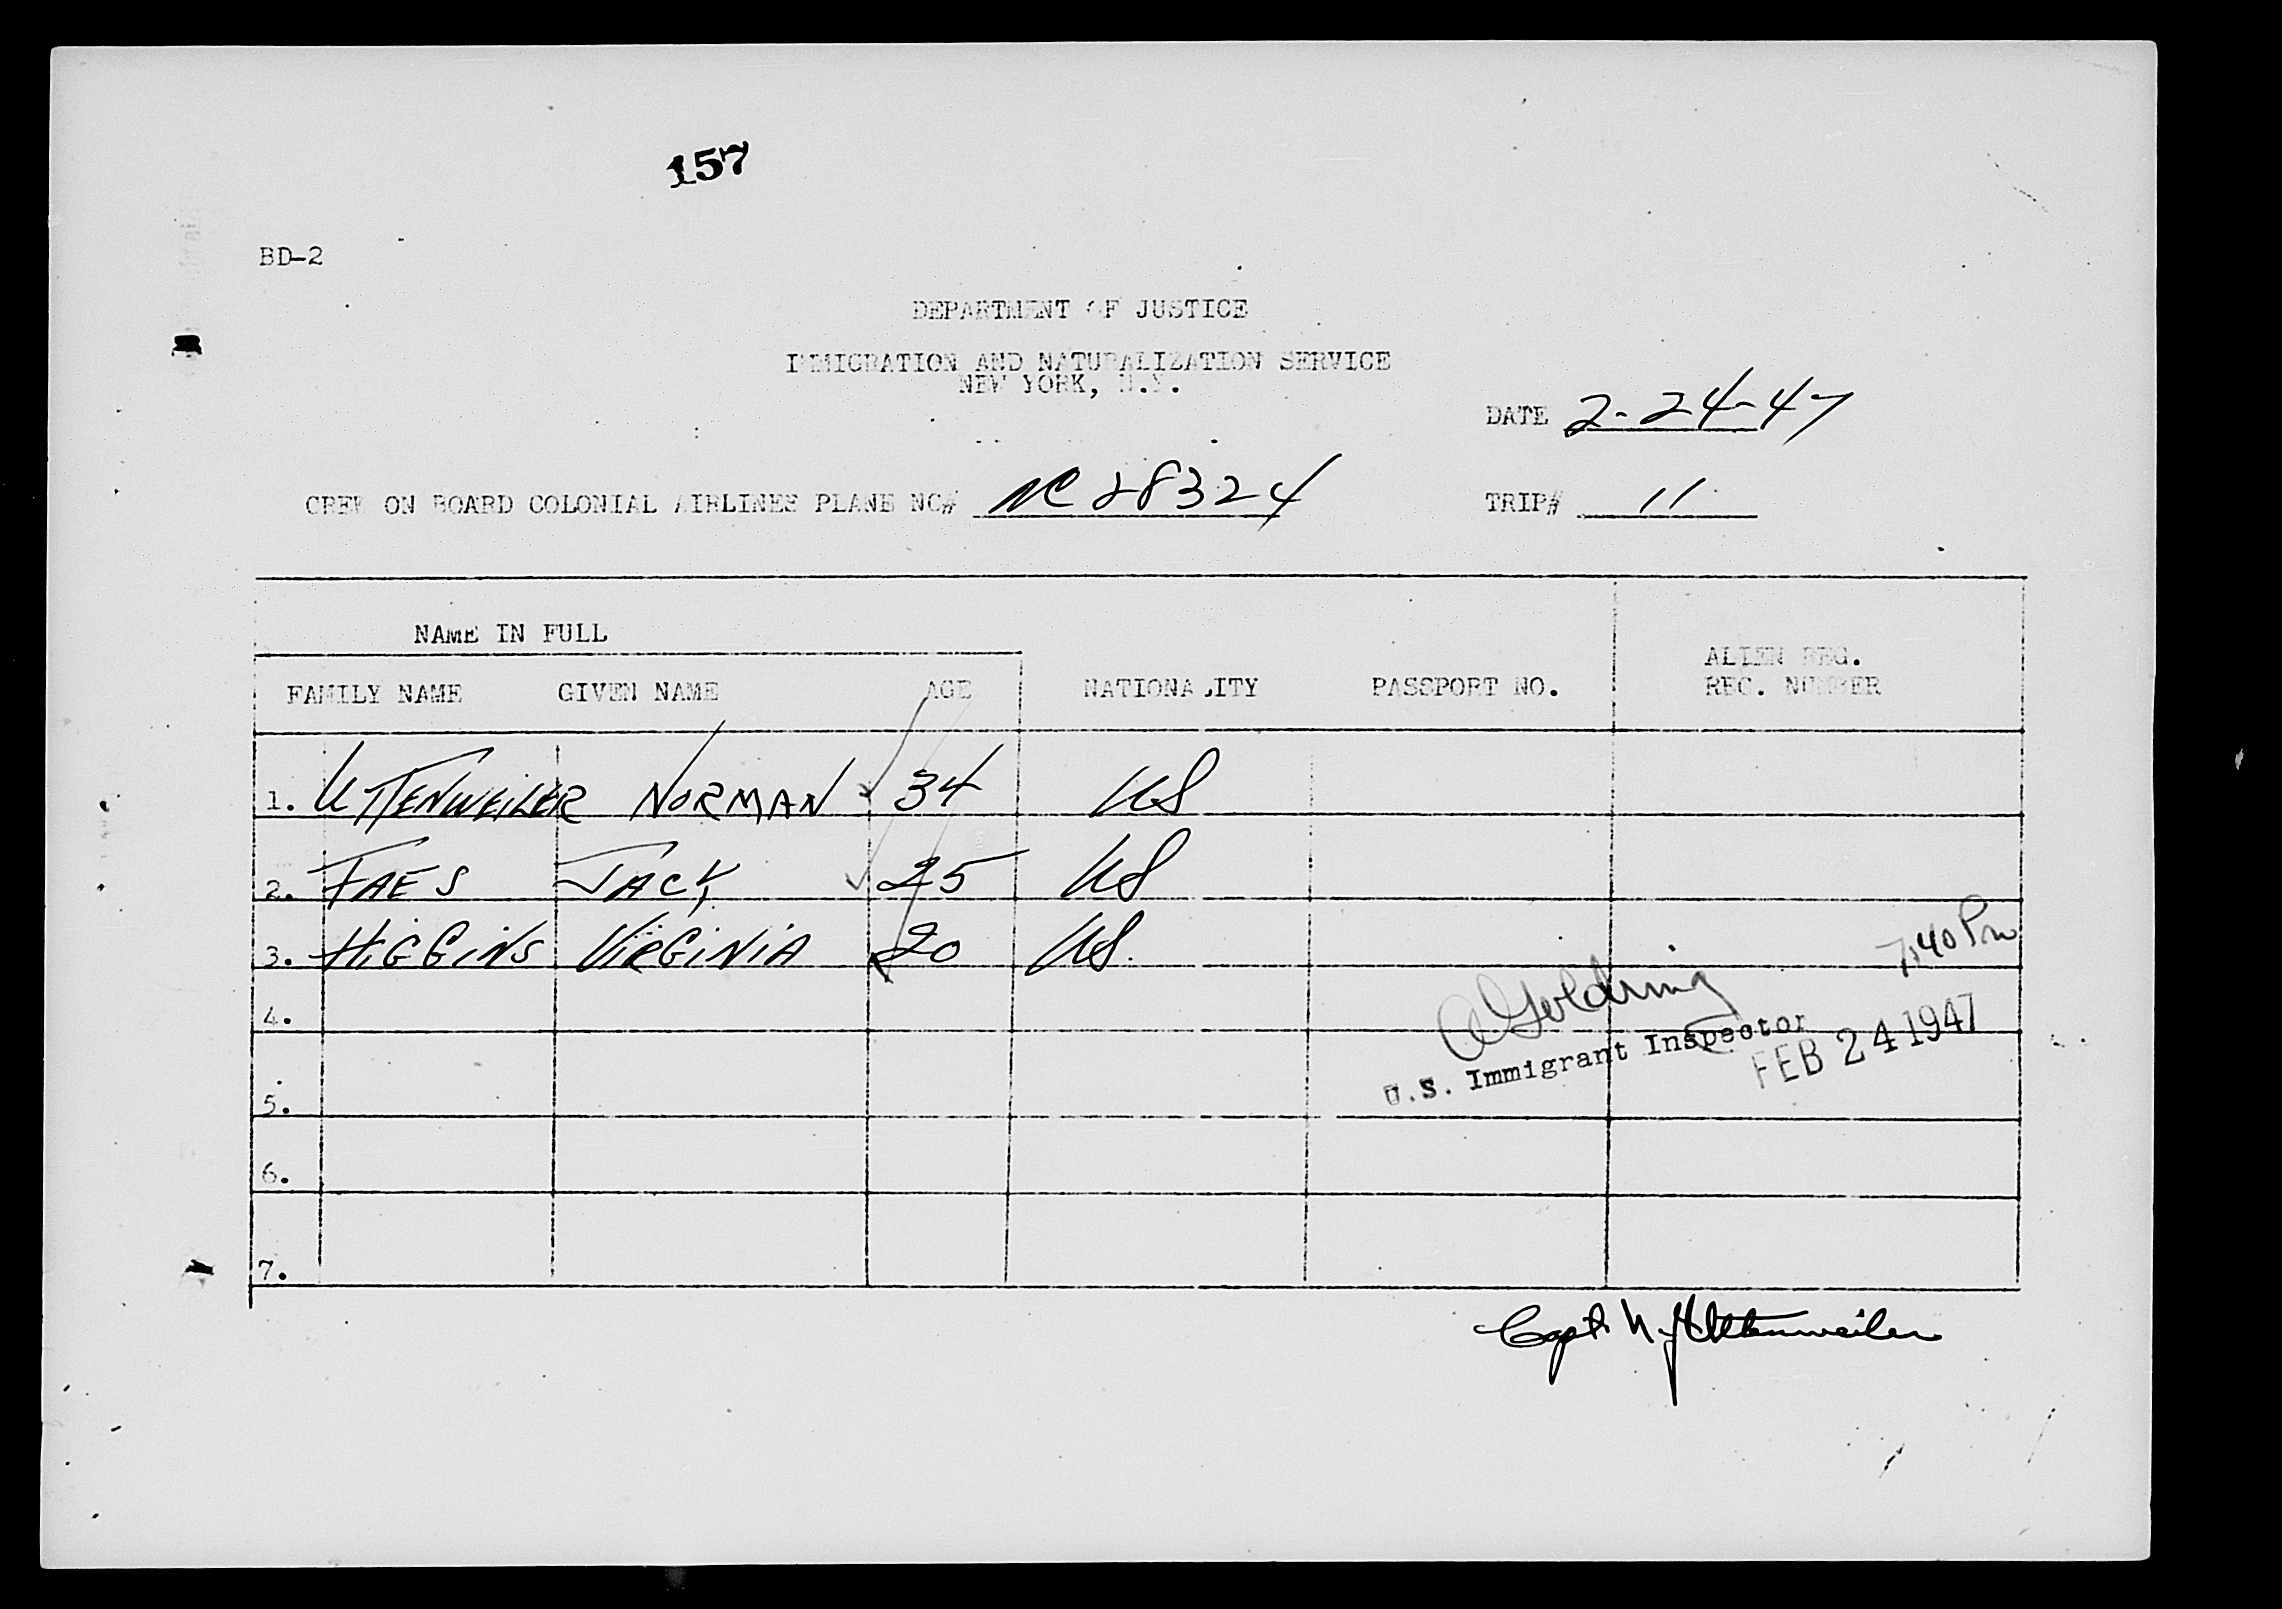 157
BD-2
DEPARTMENT OF JUSTICE
IMMIGRATION AND NATURALIZATION SERVICE
NEW YORK, N.Y.
DATE 2-24-47
CREW ON BOARD COLONIAL AIRLINES PLANE NO# NC 28324 TRIP# 11
NAME IN FULL
FAMILY NAME GIVEN NAME AGE NATIONALITY PASSPORT NO. ALIEN REG.
REC. NUMBER
1. UTTENWEILER NORMAN 34 US
2. FAES JACK 25 US
3. HIGGINS VIRGINIA 20 US.
7:40 Pm
Golding
U.S. Immigrant Inspector
FEB 24 1947
4.
5.
6.
7.
Capt. N. Uttenweiler